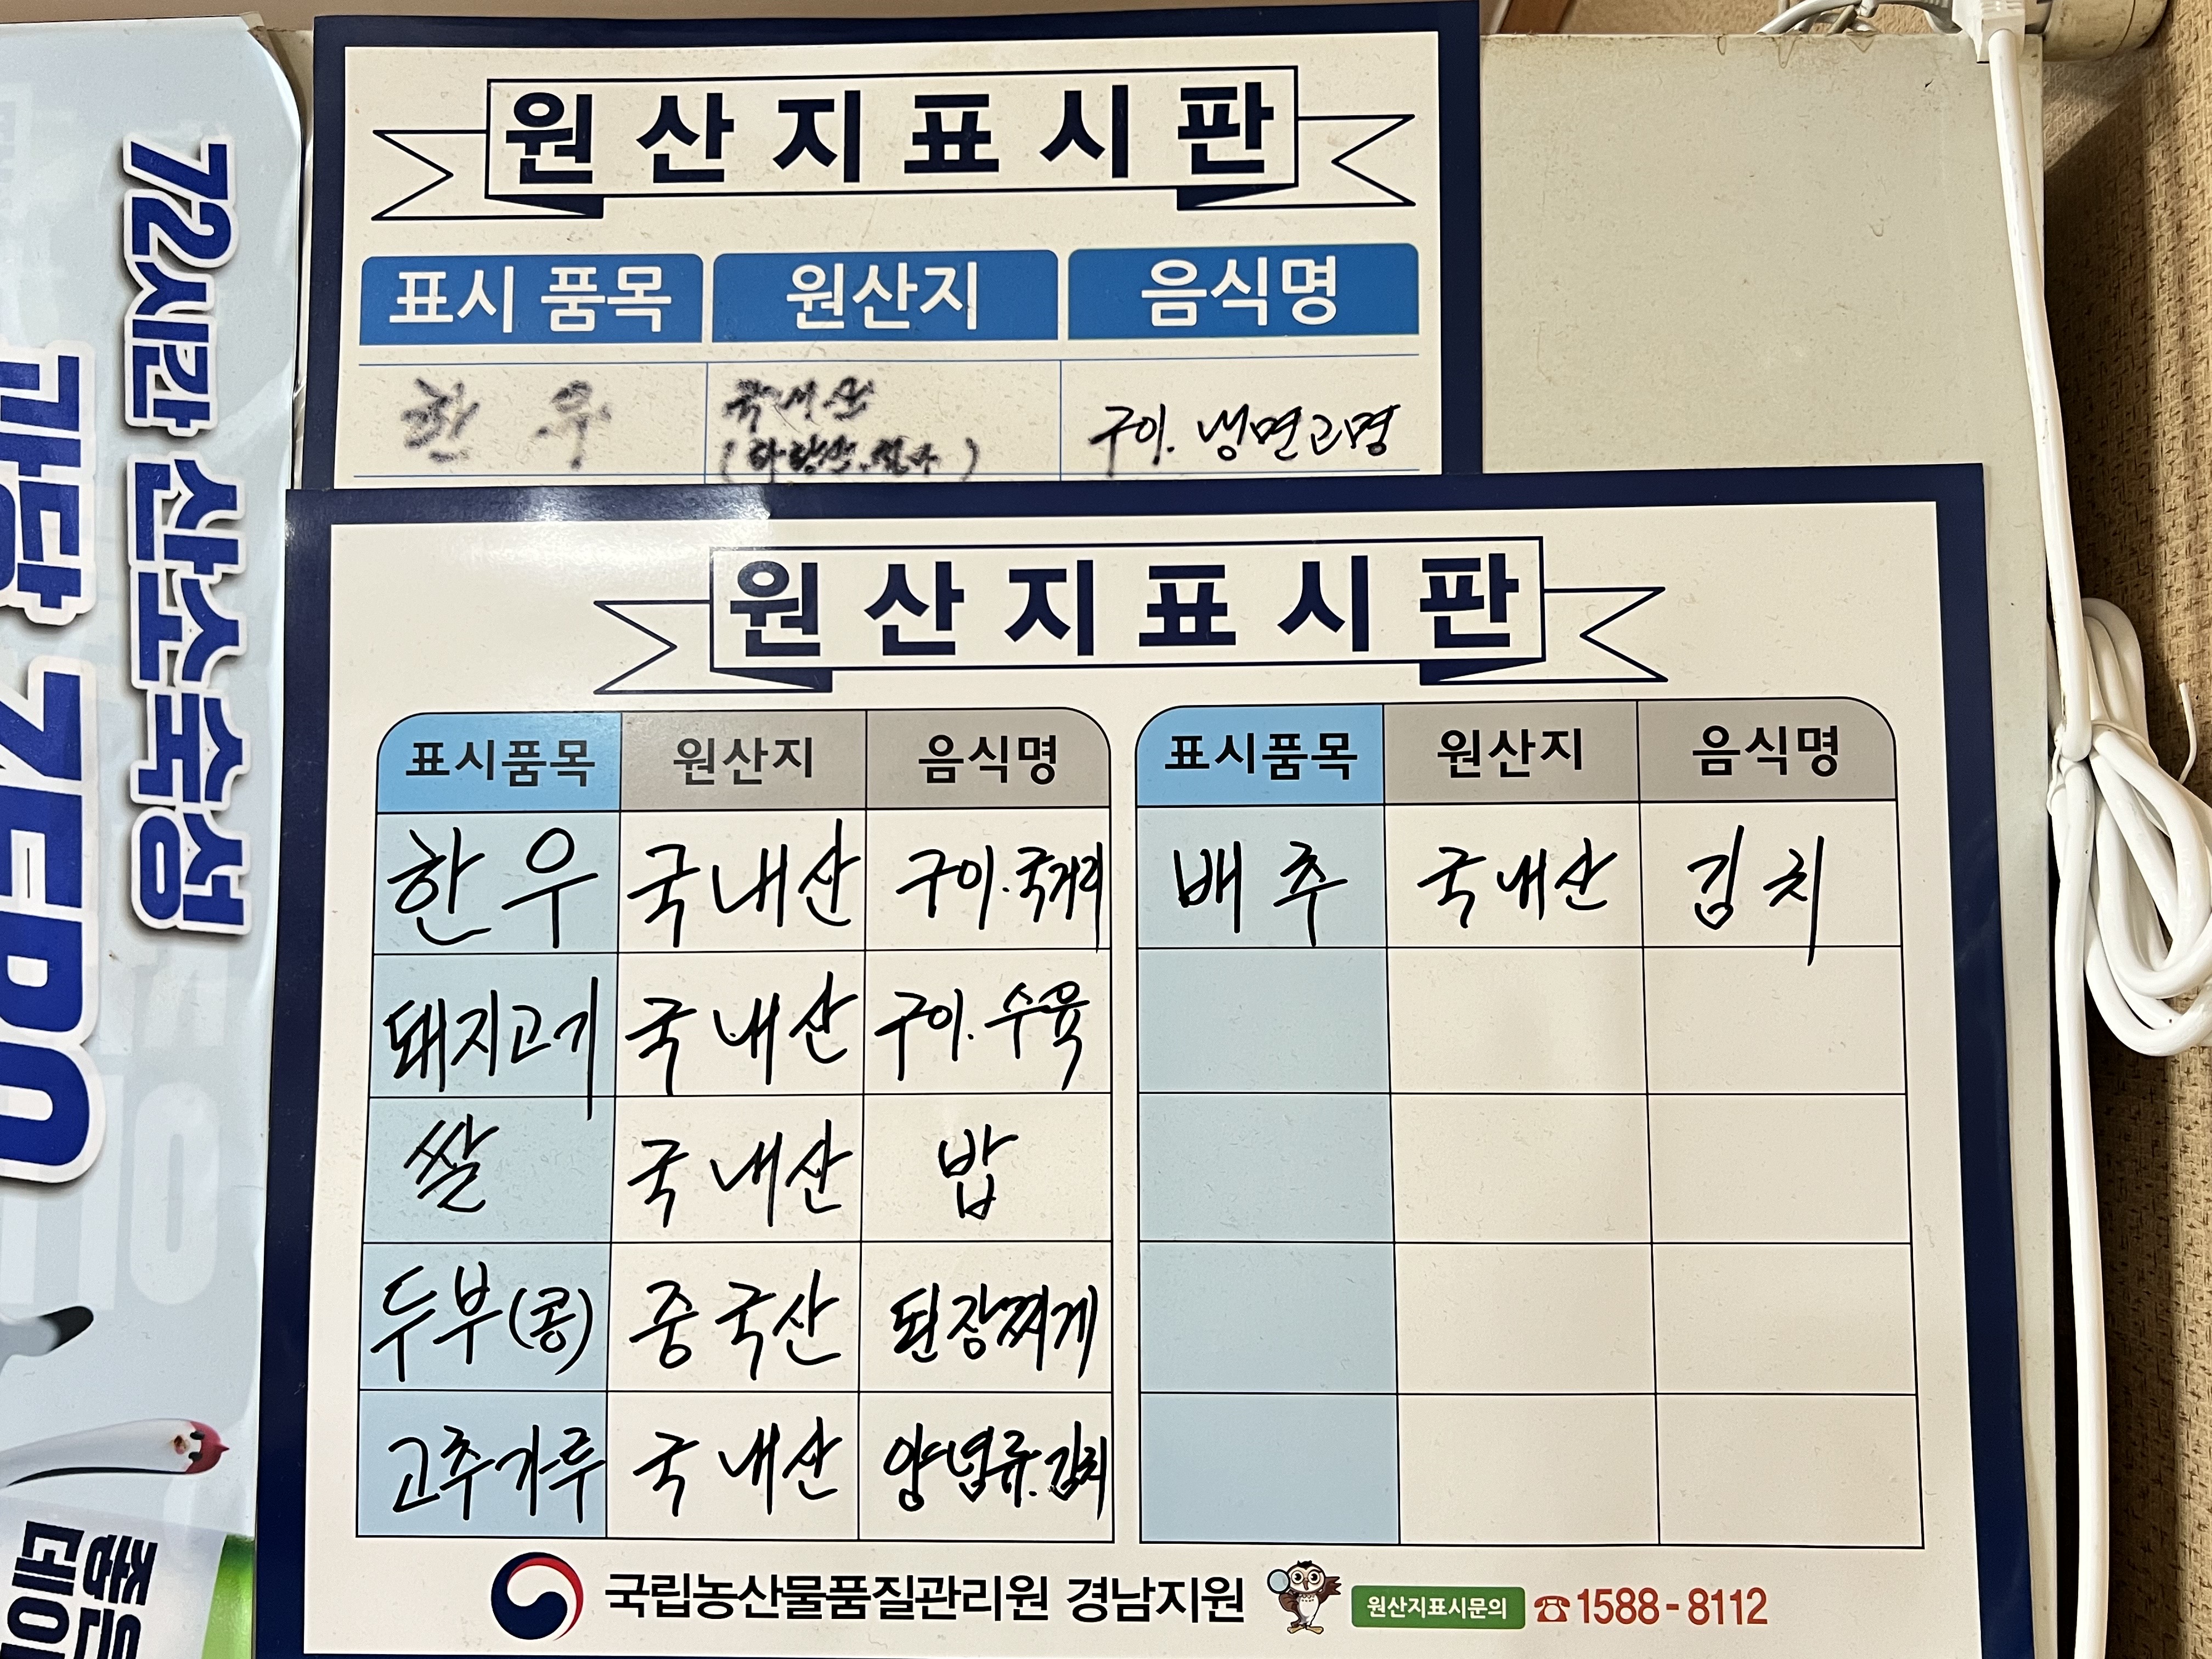 원산지표시판
표시 품목 원산지 음식명
한우 국내산 구이. 냉면고명
원산지표시판
표시품목 원산지 음식명 표시품목 원산지 음식명
한우 국내산 구이.국거리 배추 국내산 김치
돼지고기 국내산 구이.수육
쌀 국내산 밥
두부(콩) 중국산 된장찌게
고추가루 국내산 양념류.김치
국립농산물품질관리원 경남지원 원산지표시문의 ☎1588-8112
72시간 산소숙성
과당 ZERO
좋은
데이